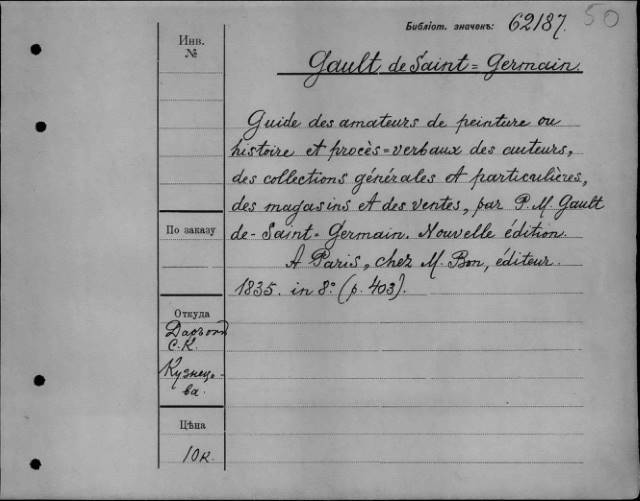 Библіот. значекъ: 62187. 50
Инв.
№
Gault de Saint=Germain.
Guide des amateurs de peinture ou
histoire et procès=verbaux des auteurs,
des collections générales et particulières,
des magasins et des ventes, par P. M. Gault
de-Saint=Germain. Nouvelle édition.
A Paris, chez M. Bon, éditeur.
1835. in 8:° (p. 403).
По заказу
Откуда
С. К.
Кузнецо-
ва.
Цѣна
10 к.